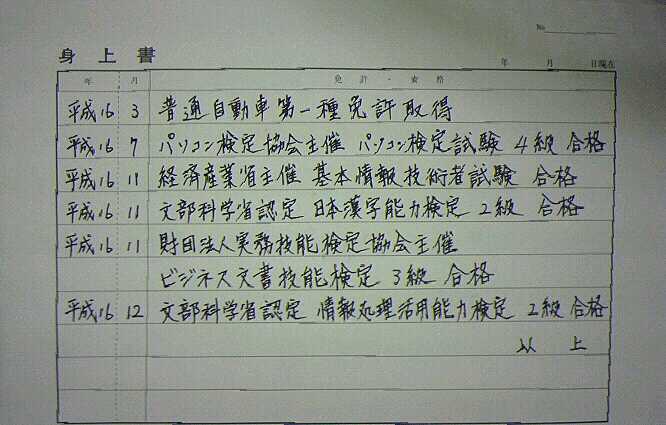 No
身上書
年 月 日現在
年 月 免許・資格
平成16 3 普通自動車第一種免許取得
平成16 7 パソコン検定協会主催 パソコン検定試験 4級 合格
平成16 11 経済産業省主催 基本情報技術者試験 合格
平成16 11 文部科学省認定 日本漢字能力検定 2級 合格
平成16 11 財団法人実務技能検定協会主催
ビジネス文書技能検定 3級 合格
平成16 12 文部科学省認定 情報処理活用能力検定 2級 合格
以上